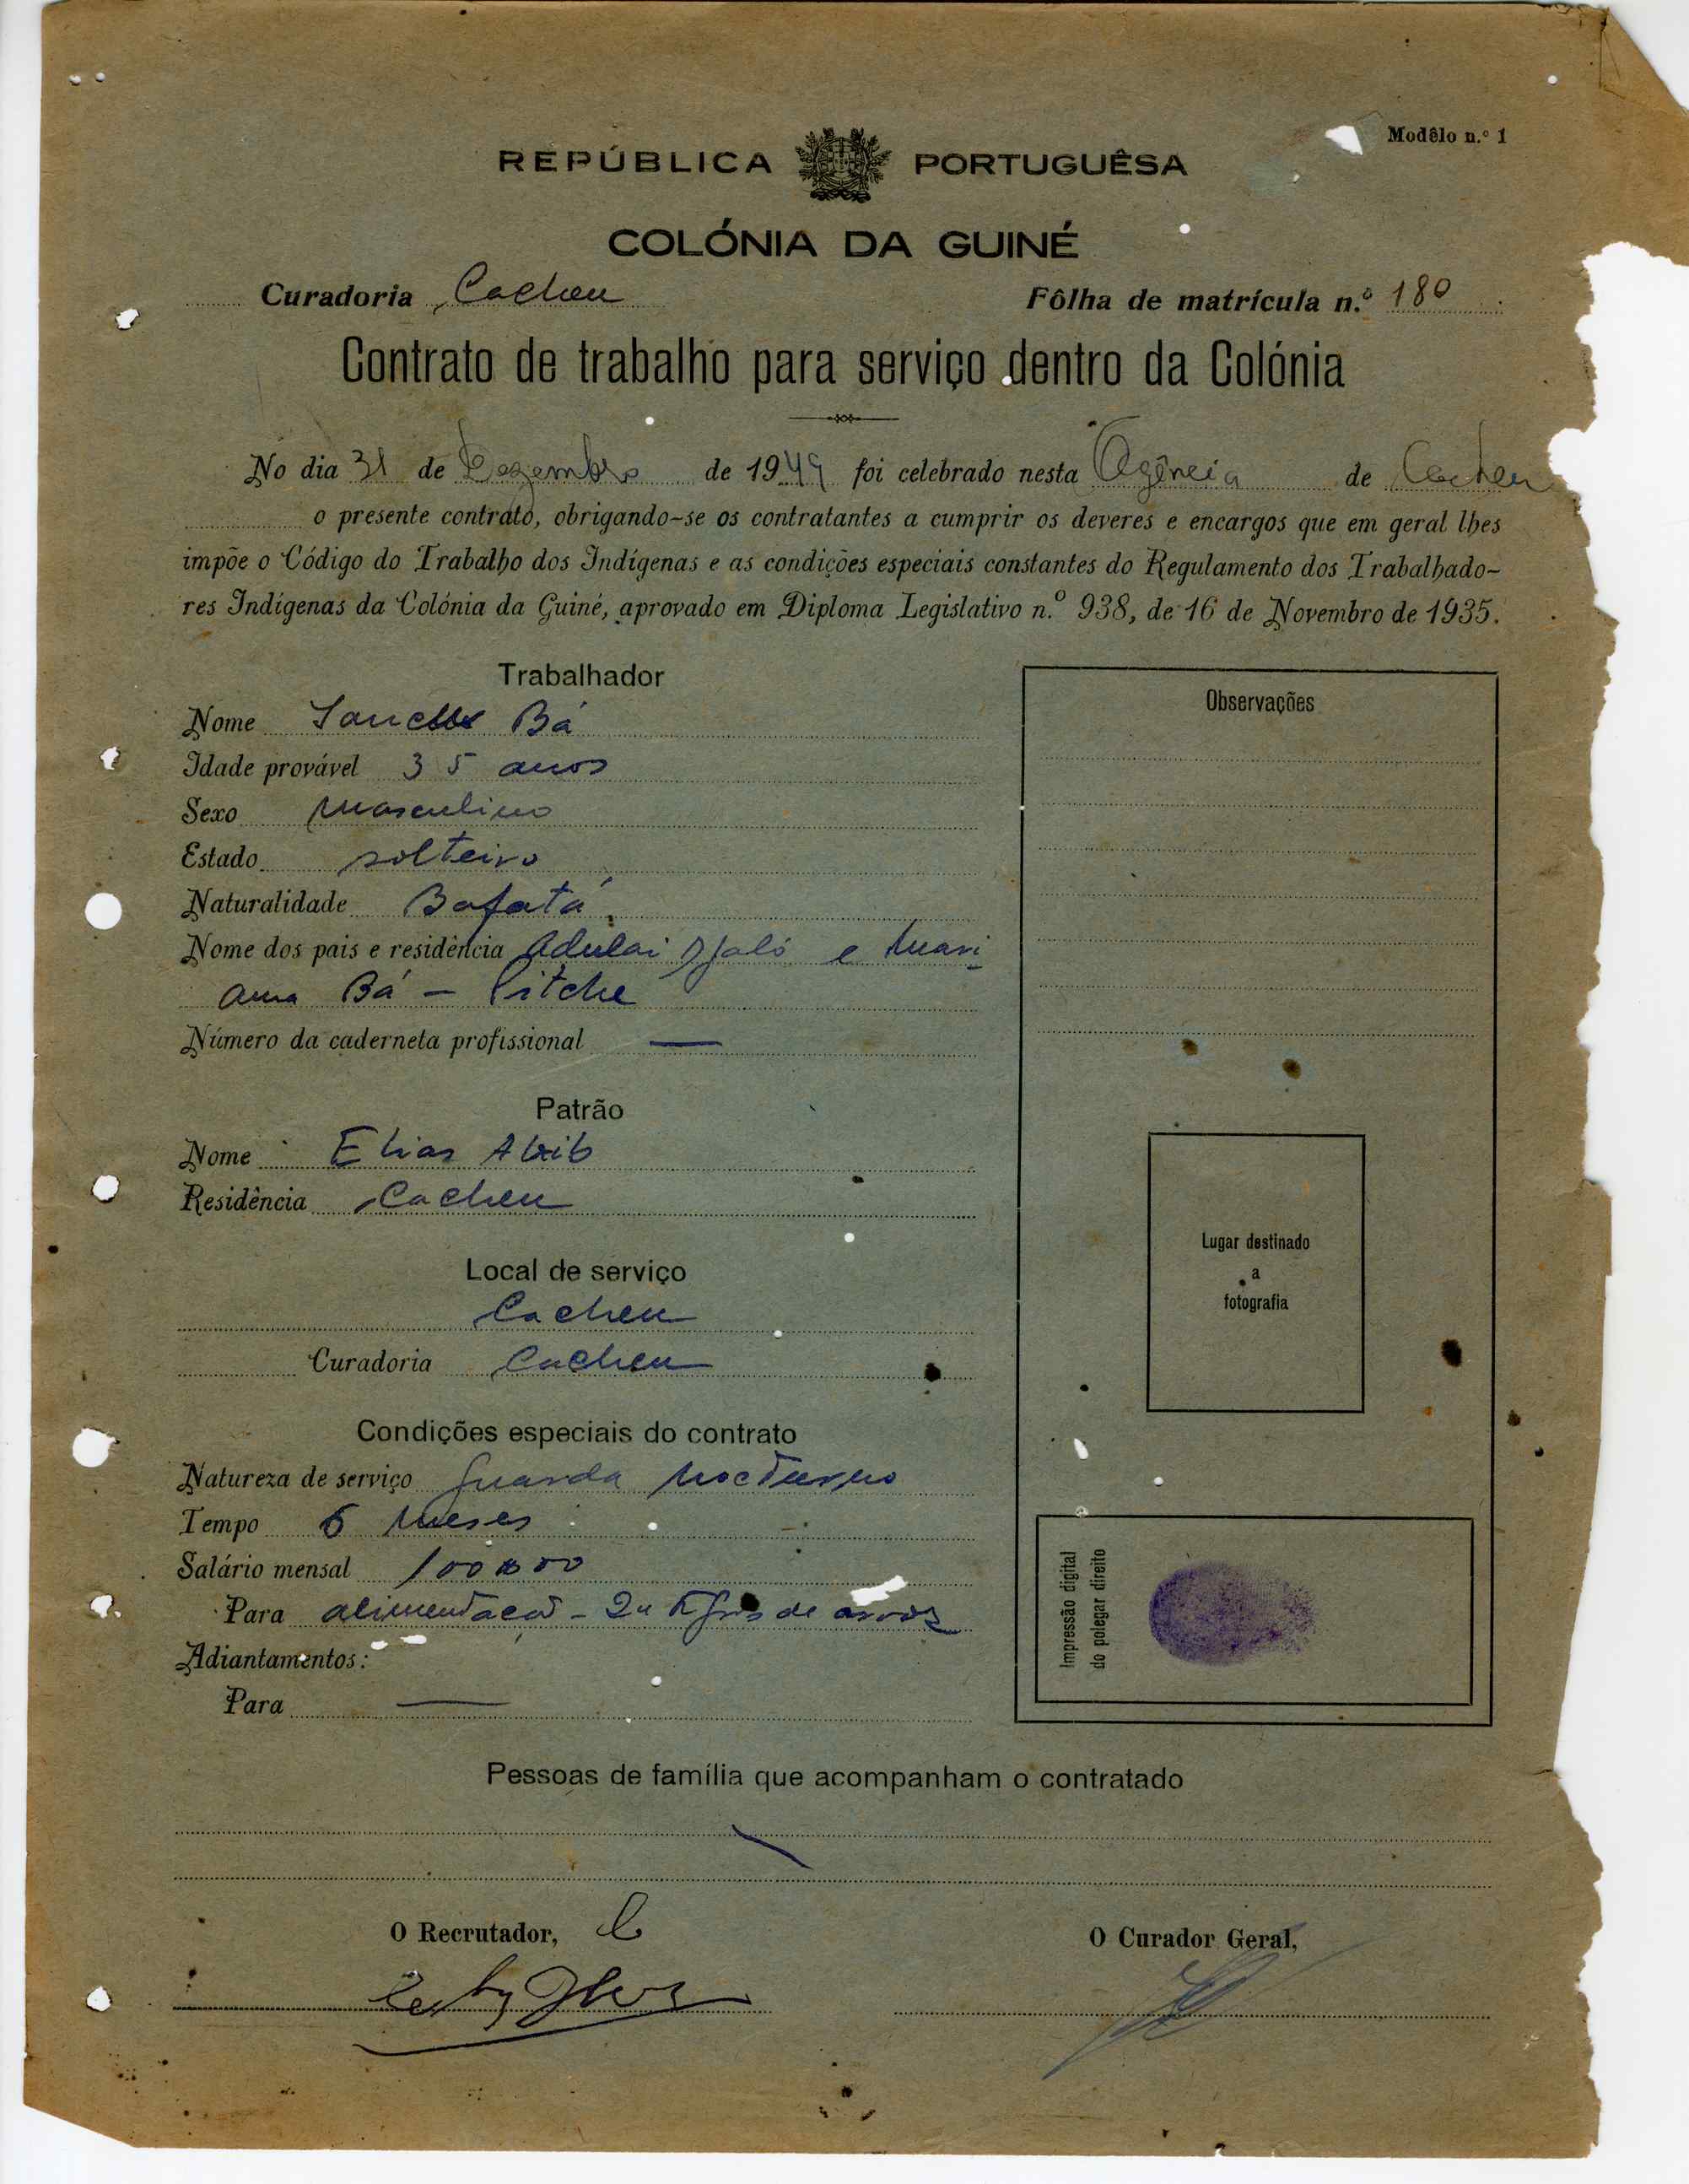 Modêlo n.º 1
REPÚBLICA PORTUGUÊSA
COLÓNIA DA GUINÉ
Curadoria Cacheu Fôlha de matrícula n.º 180
Contrato de trabalho para serviço dentro da Colónia
No dia 31 de Dezembro de 1949 foi celebrado nesta Agência de Cacheu
o presente contrato, obrigando-se os contratantes a cumprir os deveres e encargos que em geral lhes
impõe o Código do Trabalho dos Indígenas e as condições especiais constantes do Regulamento dos Trabalhado-
res Indígenas da Colónia da Guiné, aprovado em Diploma Legislativo n.º 938, de 16 de Novembro de 1935.
Trabalhador
Nome Bá
Idade provável 35 anos
Sexo Masculino
Estado solteiro
Naturalidade Bafatá
Nome dos pais e residência Adulai Djaló e Mari-
ama Bá - Pitche
Número da caderneta profissional —
Patrão
Nome Elias
Residência Cacheu
Local de serviço
Cacheu
Curadoria Cacheu
Condições especiais do contrato
Natureza de serviço Guarda Nocturno
Tempo 6 Meses
Salário mensal 100$00
Para alimentação - de arroz
Adiantamentos:
Para —
Observações
Lugar destinado
a
fotografia
Impressão digital
do polegar direito
Pessoas de família que acompanham o contratado
O Recrutador,
O Curador Geral,